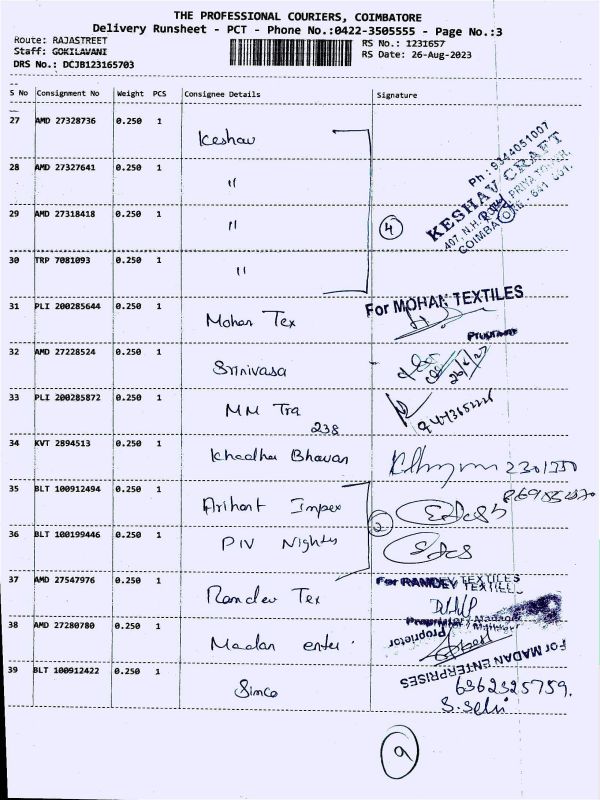 THE PROFESSIONAL COURIERS, COIMBATORE
Delivery Runsheet - PCT - Phone No.:0422-3505555 - Page No.:3
Route: RAJASTREET
Staff: GOKILAVANI
DRS No.: DCJB123165703
RS No.: 1231657
RS Date: 26-Aug-2023
S No Consignment No Weight PCS Consignee Details Signature
27 AMD 27328736 0.250 1 Keshav
28 AMD 27327641 0.250 1 "
29 AMD 27318418 0.250 1 "
30 TRP 7081093 0.250 1 "
4
Ph : 9344051007
KESHAV CRAFT
COIMBATORE - 641 001.
31 PLI 200285644 0.250 1 Mohan Tex
For MOHAN TEXTILES
32 AMD 27228524 0.250 1 Srinivasa
33 PLI 200285872 0.250 1 MM Tra
238
34 KVT 2894513 0.250 1 Khadhu Bhavan
35 BLT 100912494 0.250 1 Arihant Impex
2
36 BLT 100199446 0.250 1 PIV Nights
37 AMD 27547976 0.250 1 Ramdev Tex
For RAMDEV TEXTILES
38 AMD 27280780 0.250 1 Madan enter
Proprietor
For MADAN ENTERPRISES
39 BLT 100912422 0.250 1 Simco
6362325759.
S. Selvi
9